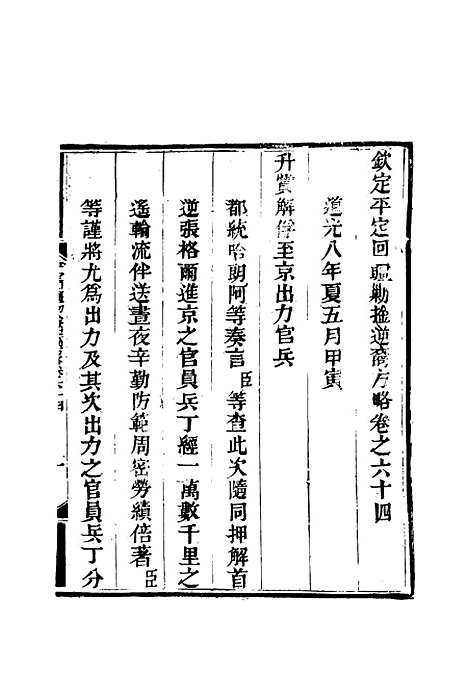 欽定平定回疆勦擒逆裔方略卷之六十四
道光八年夏五月甲寅
升賞解俘至京出力官兵
都統哈朗阿等奏言臣等查此次隨同押解首
逆張格爾進京之官員兵丁經一萬數千里之
遙輪流伴送晝夜辛勤防範周密勞績倍著臣
等謹將尤爲出力及其次出力之官員兵丁分